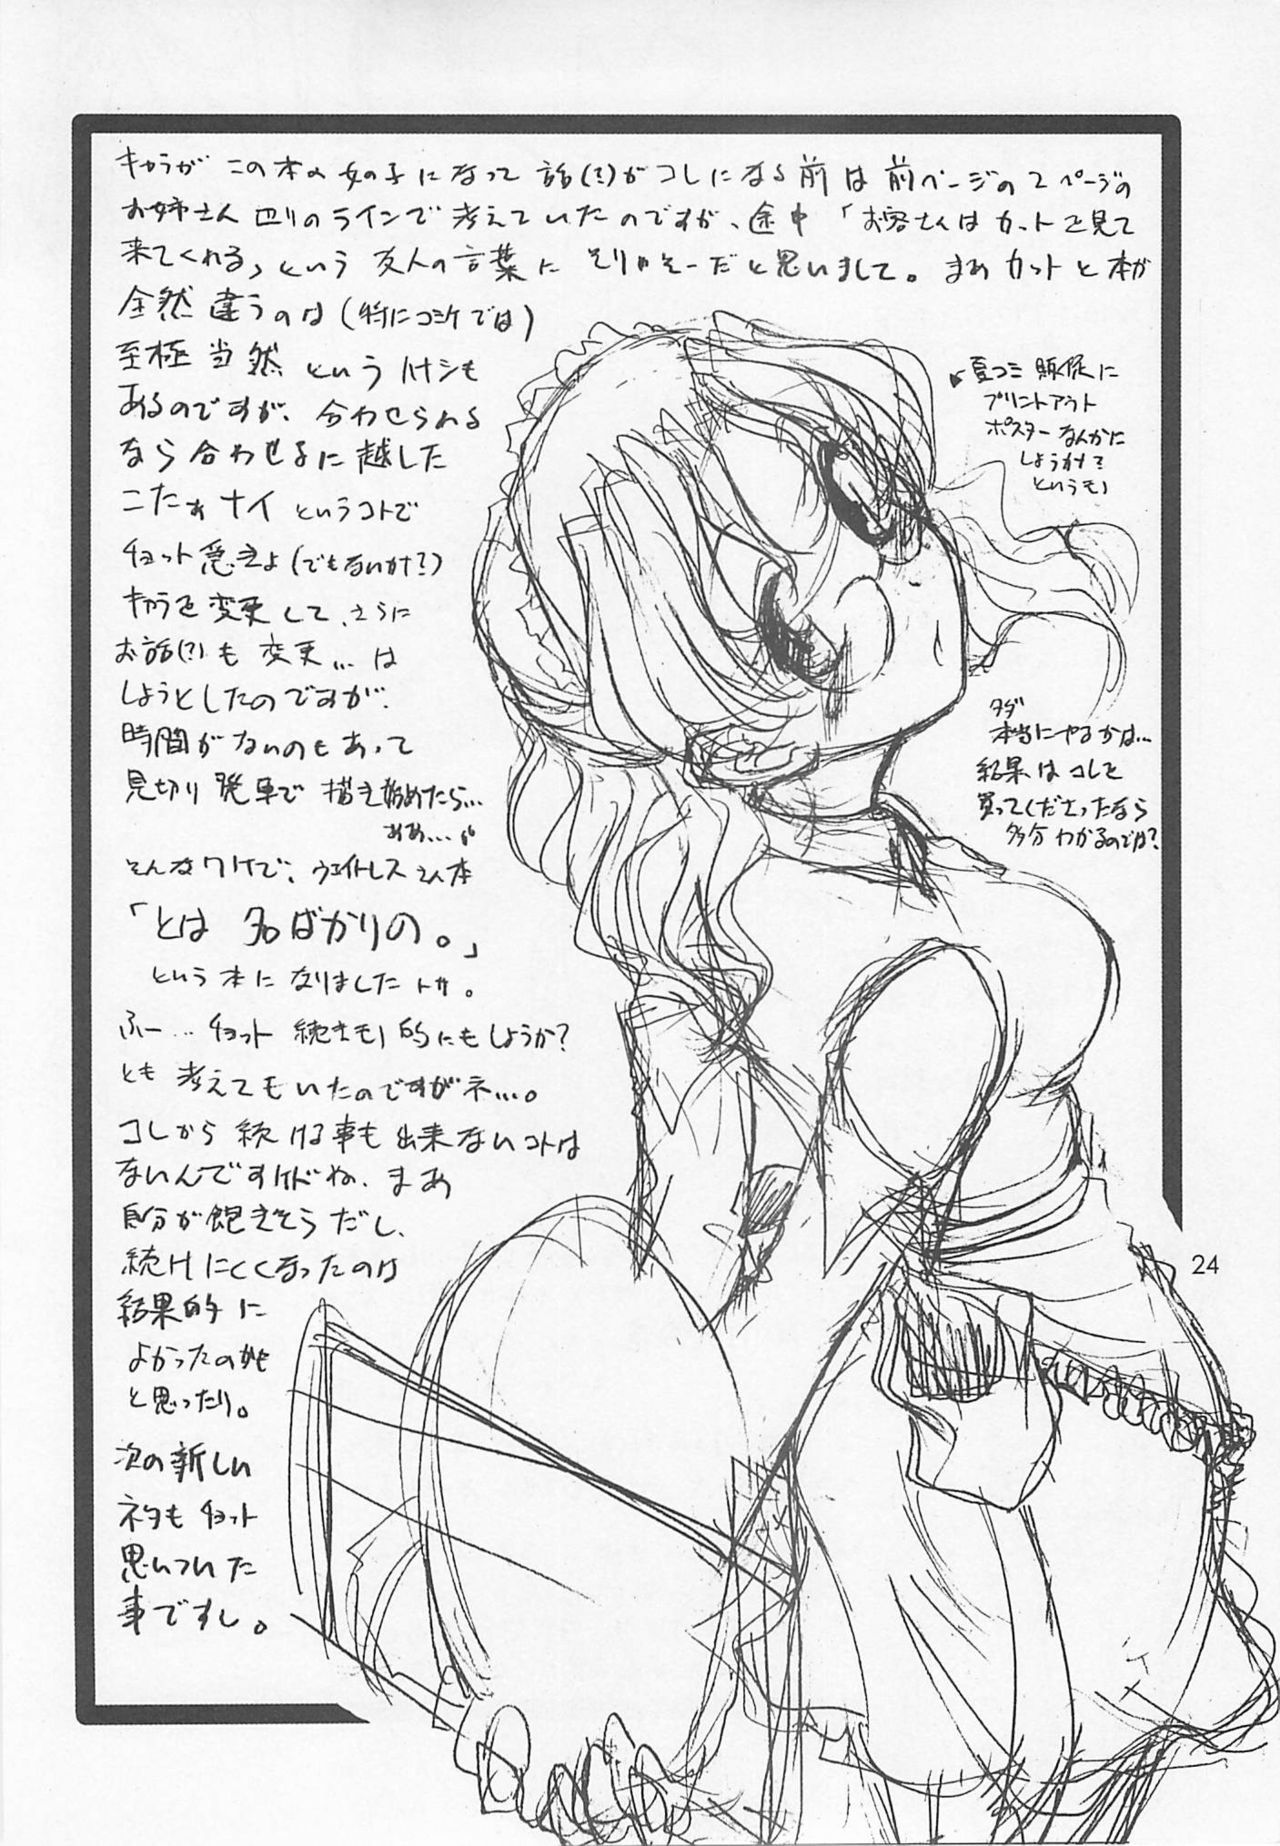 キャラが この本の 女の子になって 話(?)がコレになる前は 前ページの2ページの
お姉さん 辺りのラインで 考えていたのですが、途中「お客さんは カットを見て
来てくれる」という 友人の言葉に そりゃそーだと思いまして。まぁカットと本が
全然違うのは(特にコミケでは)
至極当然というハナシも
あるのですが、合わせられる
なら合わせるに越した
こたぁナイというコトで
チョット急きょ(でもないかナ?)
キャラを変更して、さらに
お話(?)も 変更…は
しようとしたのですが、
時間がないのもあって
見切り発車で 描き始めたら…
ああ…。
そんなワケで、ウェイトレスさん本
「とは 名ばかりの。」
という本になりましたトサ。
ふー…チョット 続きモノ的にもしようか?
とも 考えてもいたのですがネ…。
コレから 続ける事も出来ないコトは
ないんですけドね、まあ
自分が飽きそうだし、
続けにくくなったのは
結果的に
よかったのかも
と思ったり。
次の新しい
ネタも チョット
思いついた
事ですし。
夏コミ 販促に
プリントアウト
ポスターなんかに
しようかナ?
というモノ
タダ
本当にやるかは…
結果はコレを
買ってくださったなら
多分わかるのでは?
24